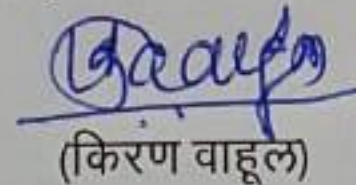 (किरण वाहूल)